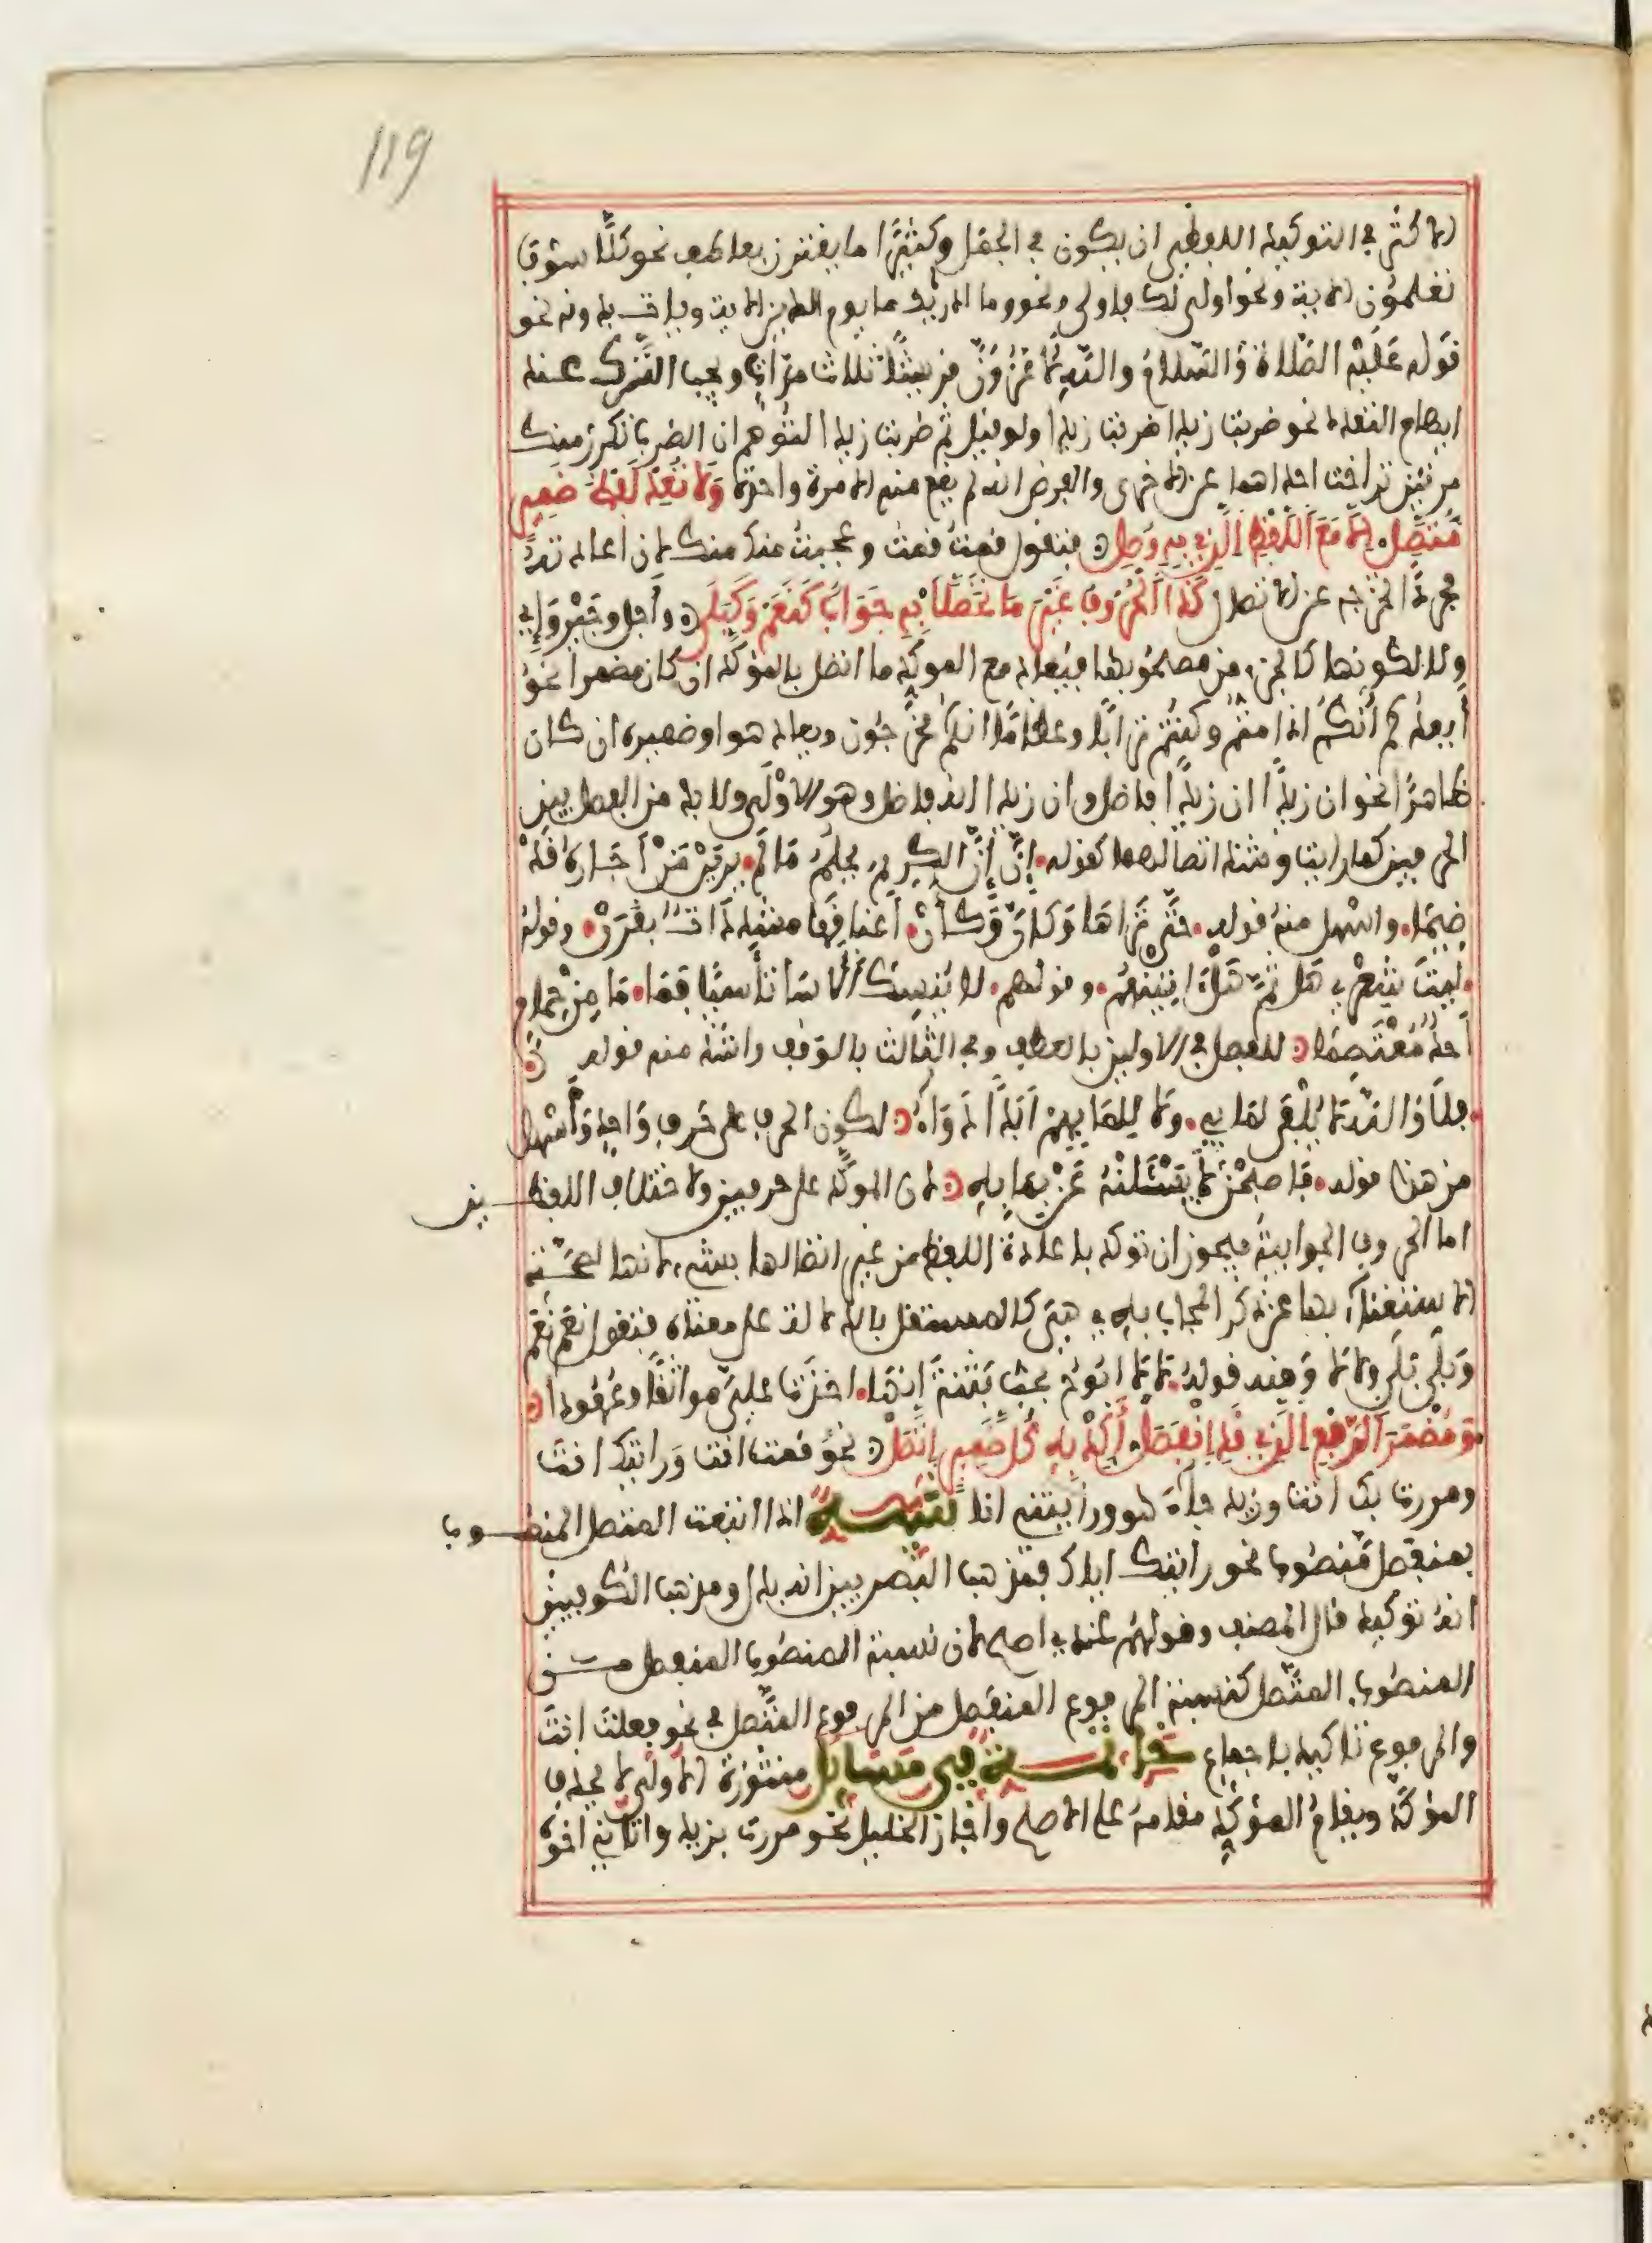 119
الاكثر في التوكيد اللفظي ان يكون في الجمل وكثيرًا ما يقترن بعاطف نحو كلّا سوف
تعلمون الاية ونحو اولى لك فاولى ونحو وما ادريك ما يوم الدين الاية وياتي بدونه نحو
قوله عَلَيْهِ الصَّلاةُ وَالسَّلامُ والله لاغزون قريشًا ثلاث مرّاتٍ ويجب الترك عند
ايهام التعدد نحو ضربت زيدا ضربت زيدا ولو قيل ثم ضربت زيدا لتوهم ان الضرب تكرر منك
مرتين تراخت احداهما عن الاخرى والغرض انه لم يقع منه الا مرة واحدة وَلا تُعِدْ لَفْظَ ضَمِيرٍ
مُتَّصِل إلا مَعَ اللَّفْظِ الَّذِي بِهِ وُصِل فتقول قمتُ قمتُ وعجبتُ منك منك لان اعادته تفرد
مجردة تخرجه عن الاتصال كَذَا الْحُرُوفُ غَيْرَ مَا تَحَصَّلا بِهِ جَوَابٌ كَنَعَمْ وَكَبَلَى وأجل وجَيْرِ وَإي
ولا لكونها كالجزء من مصحوبها فيعاد مع الموكِّد ما اتصل بالموكَّد ان كان مضمرا نحوُ
أيعدكم أنكم اذا متم وكنتم ترابًا وعظامًا انكم مخرجون ويعاد هو او ضميره ان كان
ظاهرًا نحو ان زيدًا ان زيدًا فاضل وان زيدا انه فاضل وهو الاوْلَى ولا بد من الفصل بين
الحرفين كما رايت وشذ اتصالهما كقوله إنّ إنّ الكريم يحلم مَا لمْ يرَيَنْ مَنْ أجَارَهُ قَدْ
ضِيمَا واسْهل منه قوله حتَّى تَراهَا وَكَأنَّ وَكَأنْ أعناقَها مشدداتٌ بقَرَنْ وقوله
لَيْتَ شِعْري هَل ثمّ هَلْ اتينهُمْ وقولهم لا يُنسِكَ الاسَى تأسيًا فَمَا مَا مِنْ حِمَامٍ
أحدٌ مُعْتَصِمَا للفصل في الاولين بالعطف وفي الثالث بالوَقف واشذّ منه قوله
فلا وَاللهِ لا يُلْفَى لمَا بي وَلا لِلِمَا بِهِمْ أبَدًا دَوَاءُ لكون الحرف على حَرفٍ وَاحِدٍ وَأسْهل
من هذا قوله فَاصبحْنَ لا يَسْألْنَهُ عَنْ بِمَا بِهِ لان الموكَّد على حرفين ولاختلاف اللفظين
اما الحروف الجوابية فيجوز ان توكد باعادة اللفظ من غير اتصالها بشيء لانها لصحة
الاستغناء بها عن ذكر المجاب به هي كالمستقل بالدلالة على معناه فتقول نَعَمْ نَعَمْ
وَبَلَى بَلَى ولا لا وَمنه قولهُ لا لا ابُوحُ بِحُبّ بَثْنَةَ إنّهَا اخَذَتْ عليّ مواثقًا وعُهُودا
وَمُضْمَرَ الرَّفعِ الَّذِي قَدِ انْفَصَلْ أكِّدْ بِهِ كُلَّ ضَمِيرٍ اتَّصَلْ نحوُ قمت انت وَرايتك انتَ
ومررت بك انت وزيد جاء هو ورايتني انا تنبيه اذا اتبعت المتصل المنصوب
بمنفصل مَنصوب نحو رايتك اياك فمذهب البصريين انه بدل ومذهب الكوفيين
انه توكيد قال المصنف وقولهم عندي اصح لان نسبة المنصوب المنفصل من
المنصوب المتّصل كنسبة المرفوع المنفصل من المرفوع المتّصل في نحو فعلتَ انتَ
والمرفوع تاكيد باجماع خاتمـة في مَسَايل منثورة الاولى لا يحذف
المؤكَّد ويقام المؤكِّد مقامه على الاصح واجاز الخليل نحو مررت بزيد واتاني اخوه